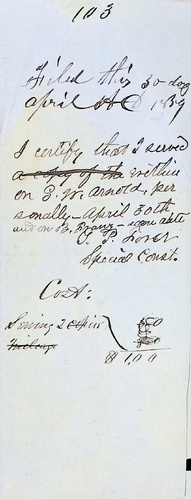 103
Filed this 30 day
april 1889
I certify that I served
a copy of the within
on E. M. Arnold, per
sonally - April 30th
and on same date
Special Const.
Cost:
Serving 2 copies
mileage
$ 1,00